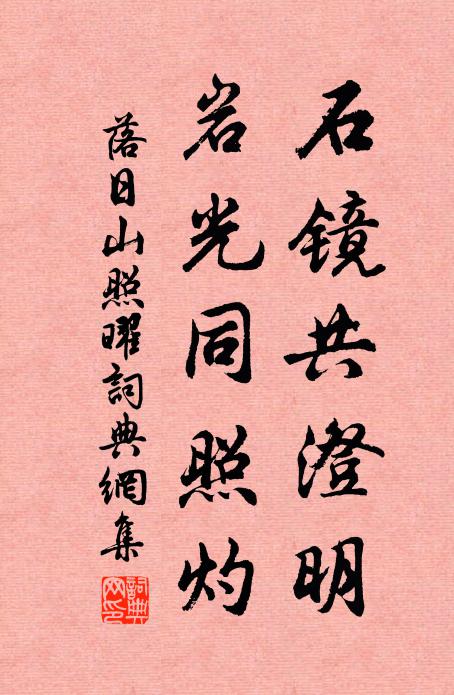 石镜共澄明
岩光同照灼
落日山照曜詞典網集
詞典网印